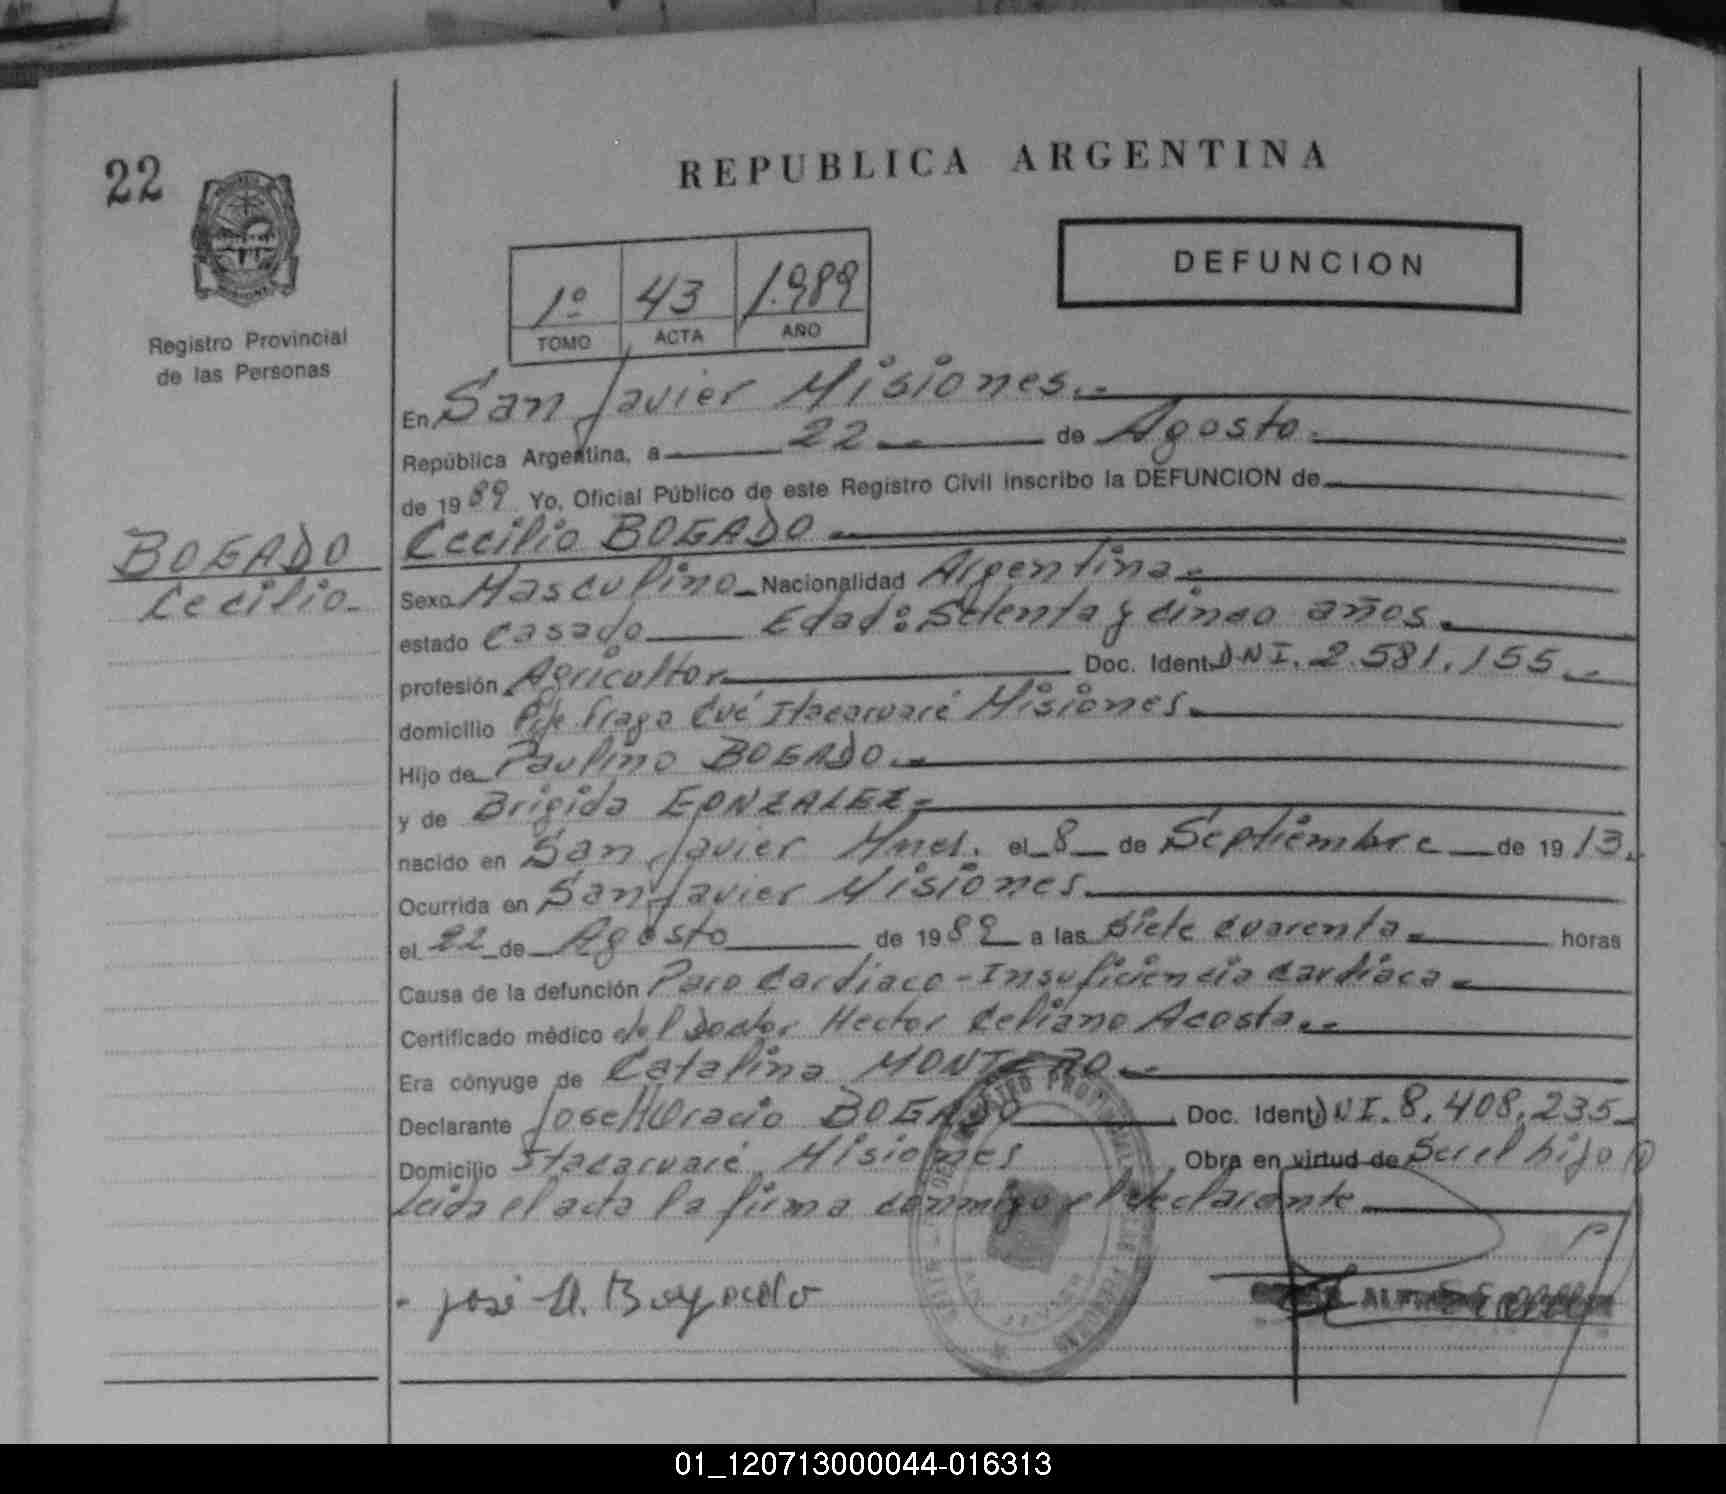 22
REPUBLICA ARGENTINA
DEFUNCION
1º 43 1.989
TOMO ACTA AÑO
Registro Provincial
de las Personas
En San Javier Misiones.-
República Argentina, a 22 de Agosto.
de 1989 Yo, Oficial Público de este Registro Civil inscribo la DEFUNCION de
BOGADO
Cecilio-
Cecilio BOGADO
Sexo Masculino Nacionalidad Argentina
estado casado Edad: Setenta y cinco años.
profesión Agricultor Doc. Ident. DNI. 2.581.155
domicilio Pje Fraga Cué Itacaruaré Misiones.
Hijo de Paulino BOGADO.-
y de Brigida GONZALEZ
nacido en San Javier Mnes. el 8 de Septiembre de 1913.
Ocurrida en San Javier Misiones
el 22 de Agosto de 1989 a las siete cuarenta horas
Causa de la defunción Paro Cardiaco - Insuficiencia cardiaca
Certificado médico del Doctor Hector Celiano Acosta.-
Era cónyuge de Catalina MONTERO
Declarante Jose Horacio BOGADO Doc. Ident. DNI. 8.408.235
Domicilio Itacaruaré Misiones Obra en virtud de Ser el hijo
Leida el acta la firma conmigo el declarante
José H. Bogado
REGISTRO PROVINCIAL DE LAS PERSONAS
SAN JAVIER
01_120713000044-016313